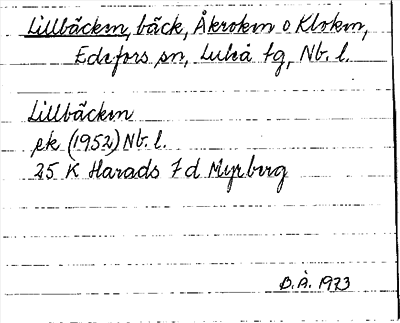 Lillbäcken, bäck, Åkroken o Kloken,
Edefors sn, Luleå tg, Nb. l.
Lillbäcken
ek (1952) Nb. l.
25 K Harads 7 d Myrberg
B.Å. 1973